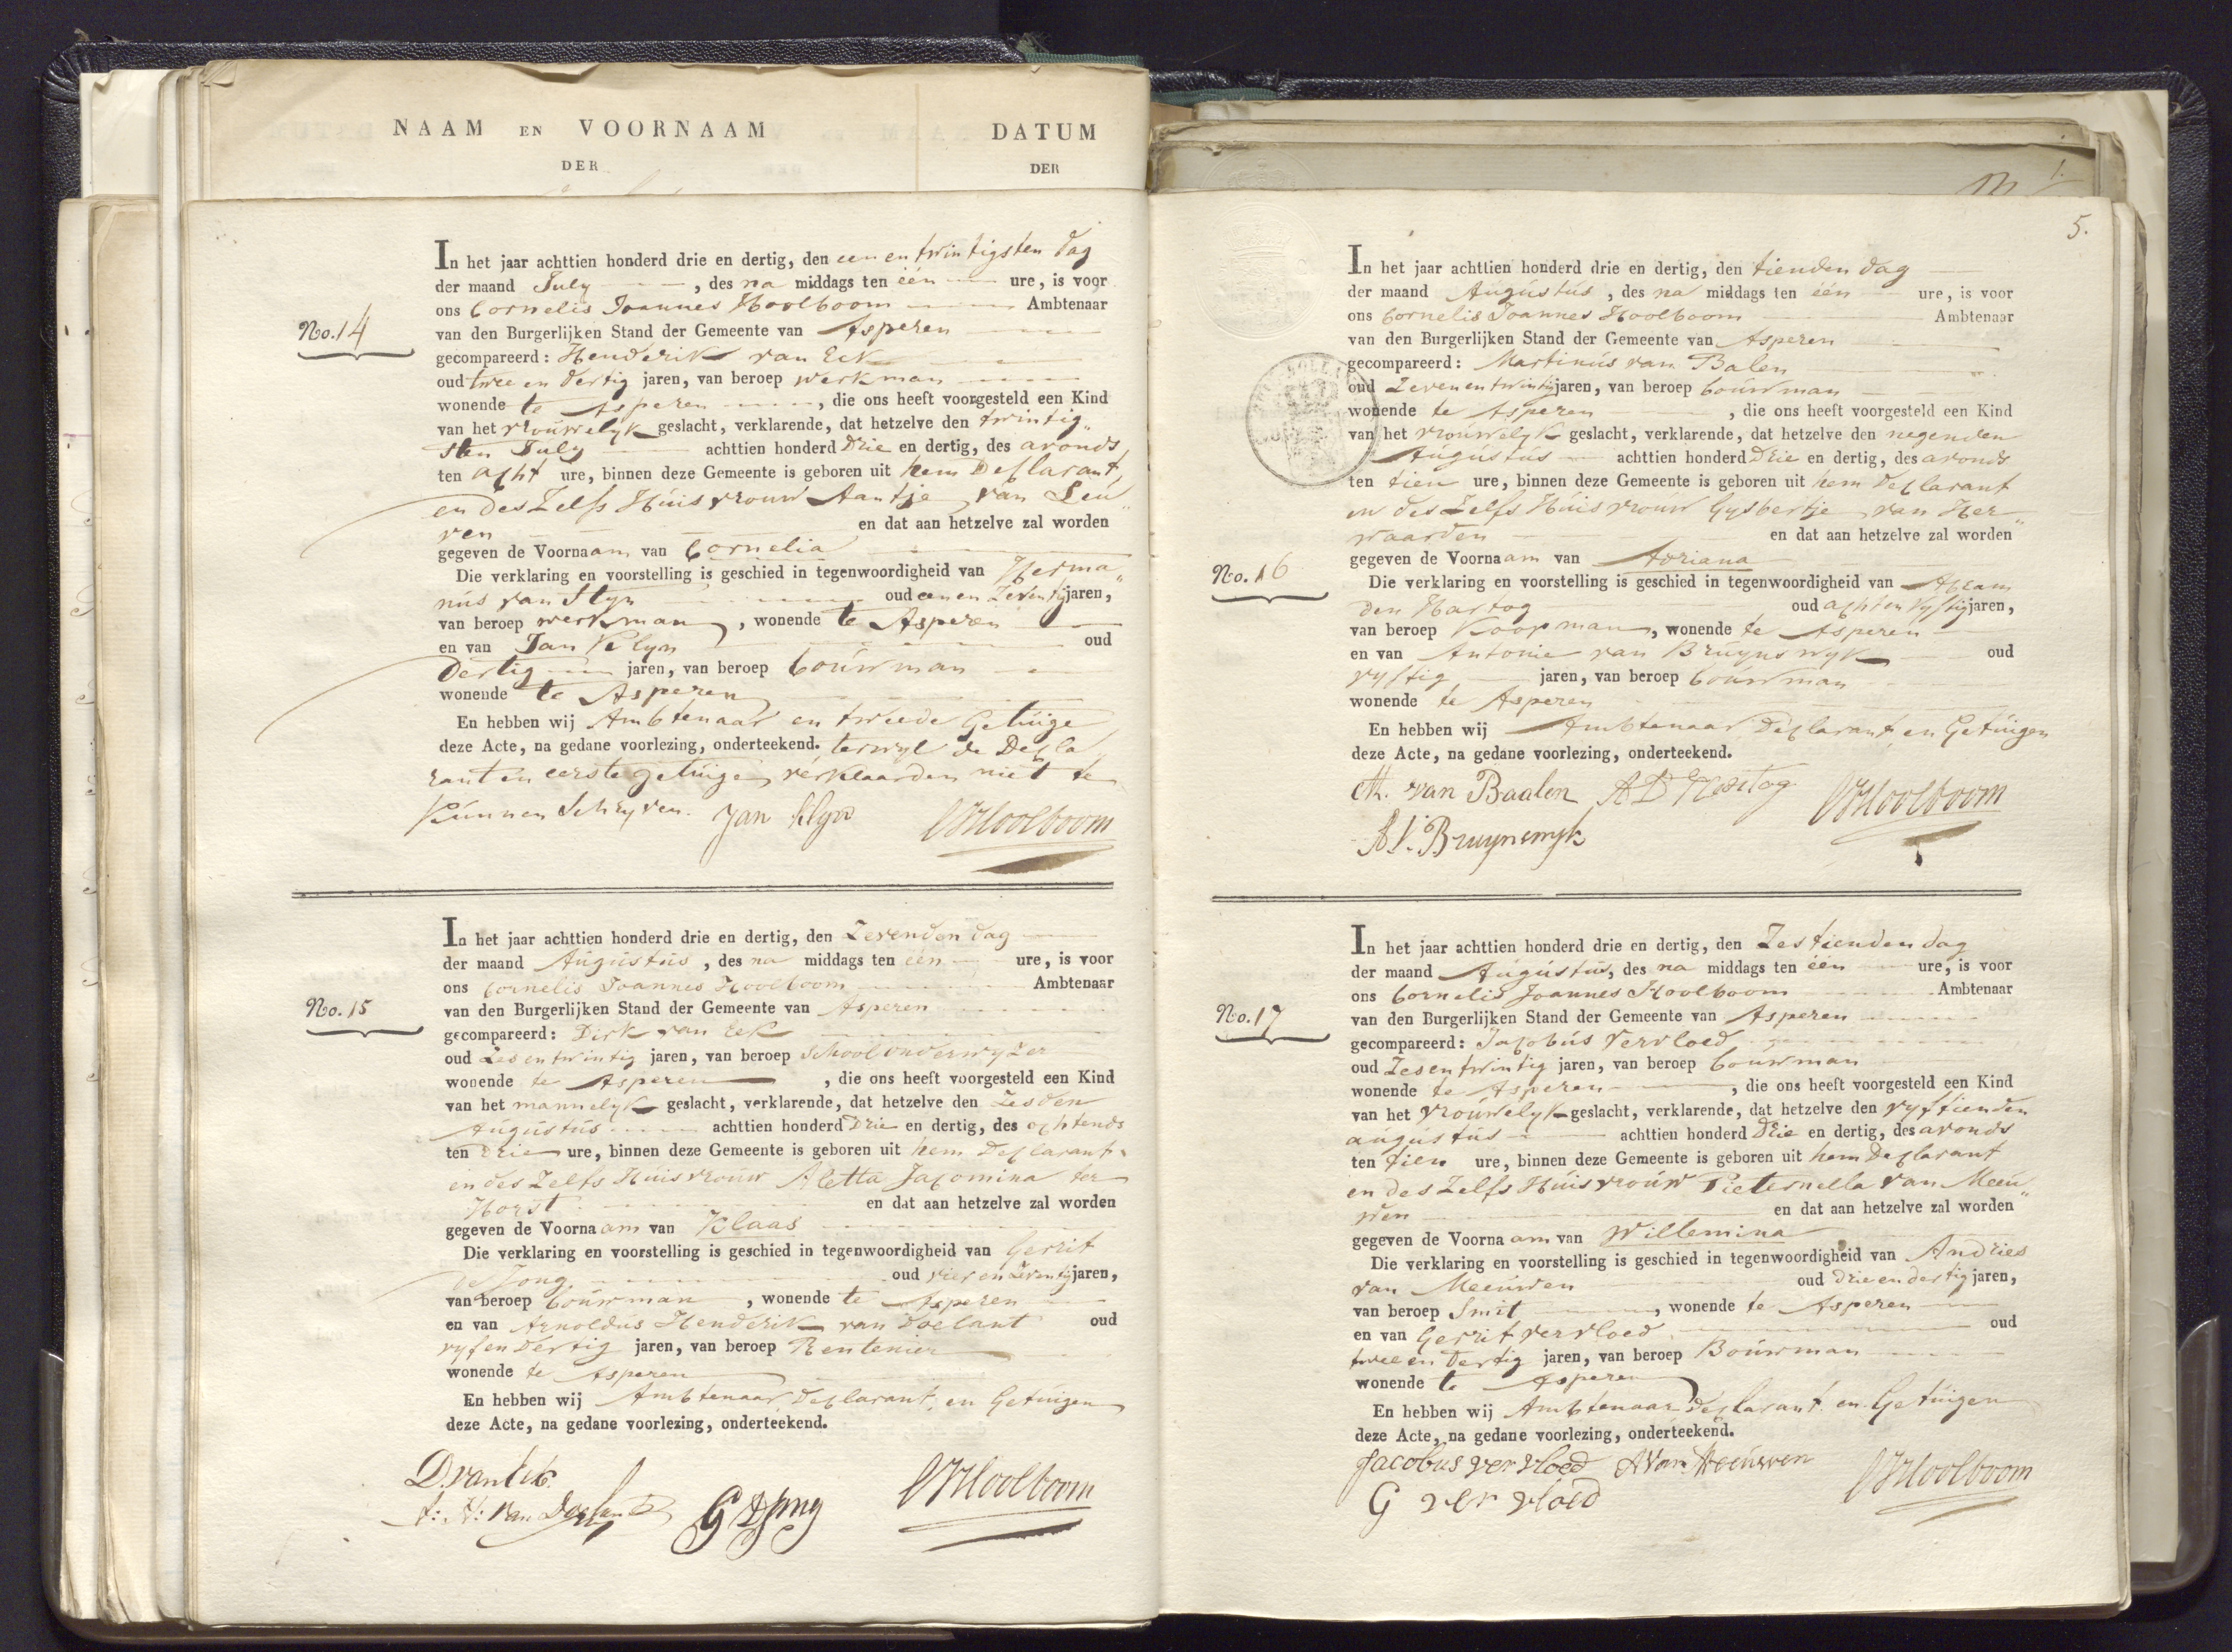 NAAM EN VOORNAAM
DER
DATUM
DER
No. 14
In het jaar achttien honderd drie en dertig, den een en twintigsten dag
der maand July , des na middags ten één ure, is voor
ons Cornelis Joannes Hoolboom Ambtenaar
van den Burgerlijken Stand der Gemeente van Asperen
gecompareerd: Henderik van Eck
oud twee en dertig jaren, van beroep werkman
wonende te Asperen , die ons heeft voorgesteld een Kind
van het vrouwelyk geslacht, verklarende, dat hetzelve den twintig„
sten July achttien honderd drie en dertig, des avonds
ten acht ure, binnen deze Gemeente is geboren uit hem Declarant
en deszelfs Huisvrouw Aantje van Leu„
ven en dat aan hetzelve zal worden
gegeven de Voornaam van Cornelia
Die verklaring en voorstelling is geschied in tegenwoordigheid van Herma„
nus van Styn oud een en zeventig jaren,
van beroep werkman, wonende te Asperen
en van Jan Klyn oud
dertig jaren, van beroep bouwman
wonende te Asperen
En hebben wij Ambtenaar en tweede Getuige
deze Acte, na gedane voorlezing, onderteekend. terwyl de Decla„
rant en eerste getuige verklaarden niet te
kunnen schryven. Jan Klyn CJHoolboom
No. 15
In het jaar achttien honderd drie en dertig, den zevenden dag
der maand Augustus , des na middags ten één ure, is voor
ons Cornelis Joannes Hoolboom Ambtenaar
van den Burgerlijken Stand der Gemeente van Asperen
gecompareerd: Dirk van Eck
oud zes en twintig jaren, van beroep schoolonderwyzer
wonende te Asperen , die ons heeft voorgesteld een Kind
van het mannelyk geslacht, verklarende, dat hetzelve den zesden
Augustus achttien honderd drie en dertig, des ochtends
ten drie ure, binnen deze Gemeente is geboren uit hem Declarant
en deszelfs Huisvrouw Aletta Jacomina ter
Horst en dat aan hetzelve zal worden
gegeven de Voornaam van Klaas
Die verklaring en voorstelling is geschied in tegenwoordigheid van Gerrit
de Jong oud vier en zeventig jaren,
van beroep bouwman , wonende te Asperen
en van Arnoldus Henderik van Doelant oud
vyf en dertig jaren, van beroep Rentenier
wonende te Asperen
En hebben wij Ambtenaar, Declarant, en Getuigen
deze Acte, na gedane voorlezing, onderteekend.
D. van Eck CJHoolboom
A: H: van Doeland G d Jong
5.
No. 16
In het jaar achttien honderd drie en dertig, den tienden dag
der maand Augustus , des na middags ten één ure, is voor
ons Cornelis Joannes Hoolboom Ambtenaar
van den Burgerlijken Stand der Gemeente van Asperen
gecompareerd: Martinus van Balen
oud zeven en twintig jaren, van beroep bouwman
wonende te Asperen , die ons heeft voorgesteld een Kind
van het vrouwelyk geslacht, verklarende, dat hetzelve den negenden
Augustus achttien honderd drie en dertig, des avonds
ten tien ure, binnen deze Gemeente is geboren uit hem declarant
en deszelfs Huisvrouw Gysbertje van Her„
waarden en dat aan hetzelve zal worden
gegeven de Voornaam van Adriana
Die verklaring en voorstelling is geschied in tegenwoordigheid van Abram
den Hartog oud acht en vyftig jaren,
van beroep Koopman, wonende te Asperen
en van Antonie van Bruynswyk oud
vyftig jaren, van beroep bouwman
wonende te Asperen
En hebben wij Ambtenaar, Declarant, en Getuigen
deze Acte, na gedane voorlezing, onderteekend.
M. van Baalen A D Hartog CJHoolboom
A V. Bruynswyk
No. 17
In het jaar achttien honderd drie en dertig, den zestienden dag
der maand Augustus, des na middags ten één ure, is voor
ons Cornelis Joannes Hoolboom Ambtenaar
van den Burgerlijken Stand der Gemeente van Asperen
gecompareerd: Jacobus Vervloed
oud zes en twintig jaren, van beroep bouwman
wonende te Asperen , die ons heeft voorgesteld een Kind
van het vrouwelyk geslacht, verklarende, dat hetzelve den vyftienden
augustus achttien honderd drie en dertig, des avonds
ten tien ure, binnen deze Gemeente is geboren uit hem declarant
en deszelfs Huisvrouw Pieternella van Meeu„
wen en dat aan hetzelve zal worden
gegeven de Voornaam van Willemina
Die verklaring en voorstelling is geschied in tegenwoordigheid van Andries
van Meeuwen oud drie en dertig jaren,
van beroep Smit , wonende te Asperen
en van Gerrit vervloed oud
twee en dertig jaren, van beroep Bouwman
wonende te Asperen
En hebben wij Ambtenaar declarant en Getuigen
deze Acte, na gedane voorlezing, onderteekend.
Jacobus ver vloed A van Meeuwen CJHoolboom
G ver vloed